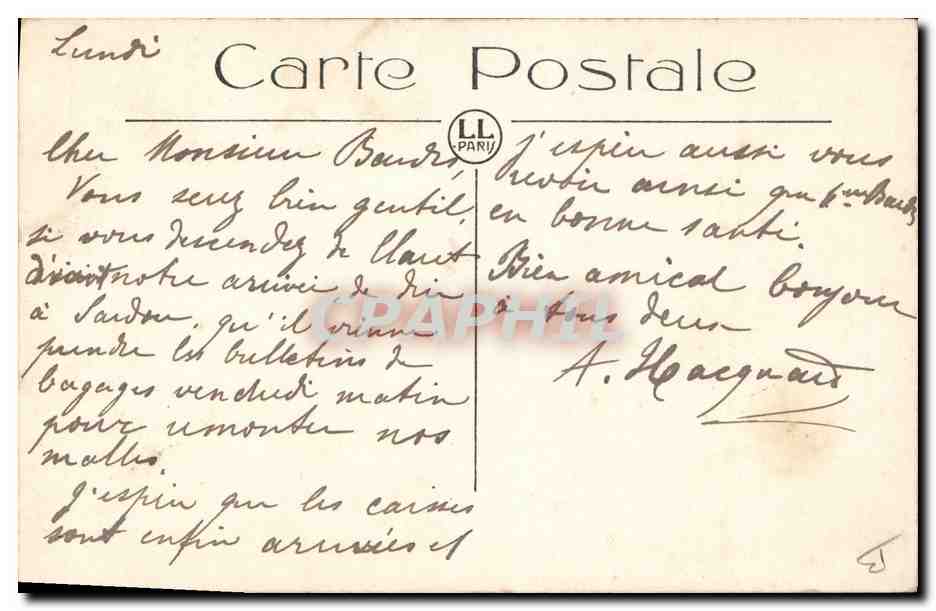 Lundi
Carte Postale
LL
PARIS
Cher Monsieur Baudis,
Vous serez bien gentil,
si vous descendez de Claret
avant notre arrivée de dire
à Sardou, qu'il vienne
prendre les bulletins de
bagages vendredi matin
pour remonter nos
malles.
J'espère que les caisses
sont enfin arrivées et
j'espère aussi vous
revoir ainsi que
en bonne santé.
Bien amical bonjour
à tous deux
A. Hacquard
CPAPHIL